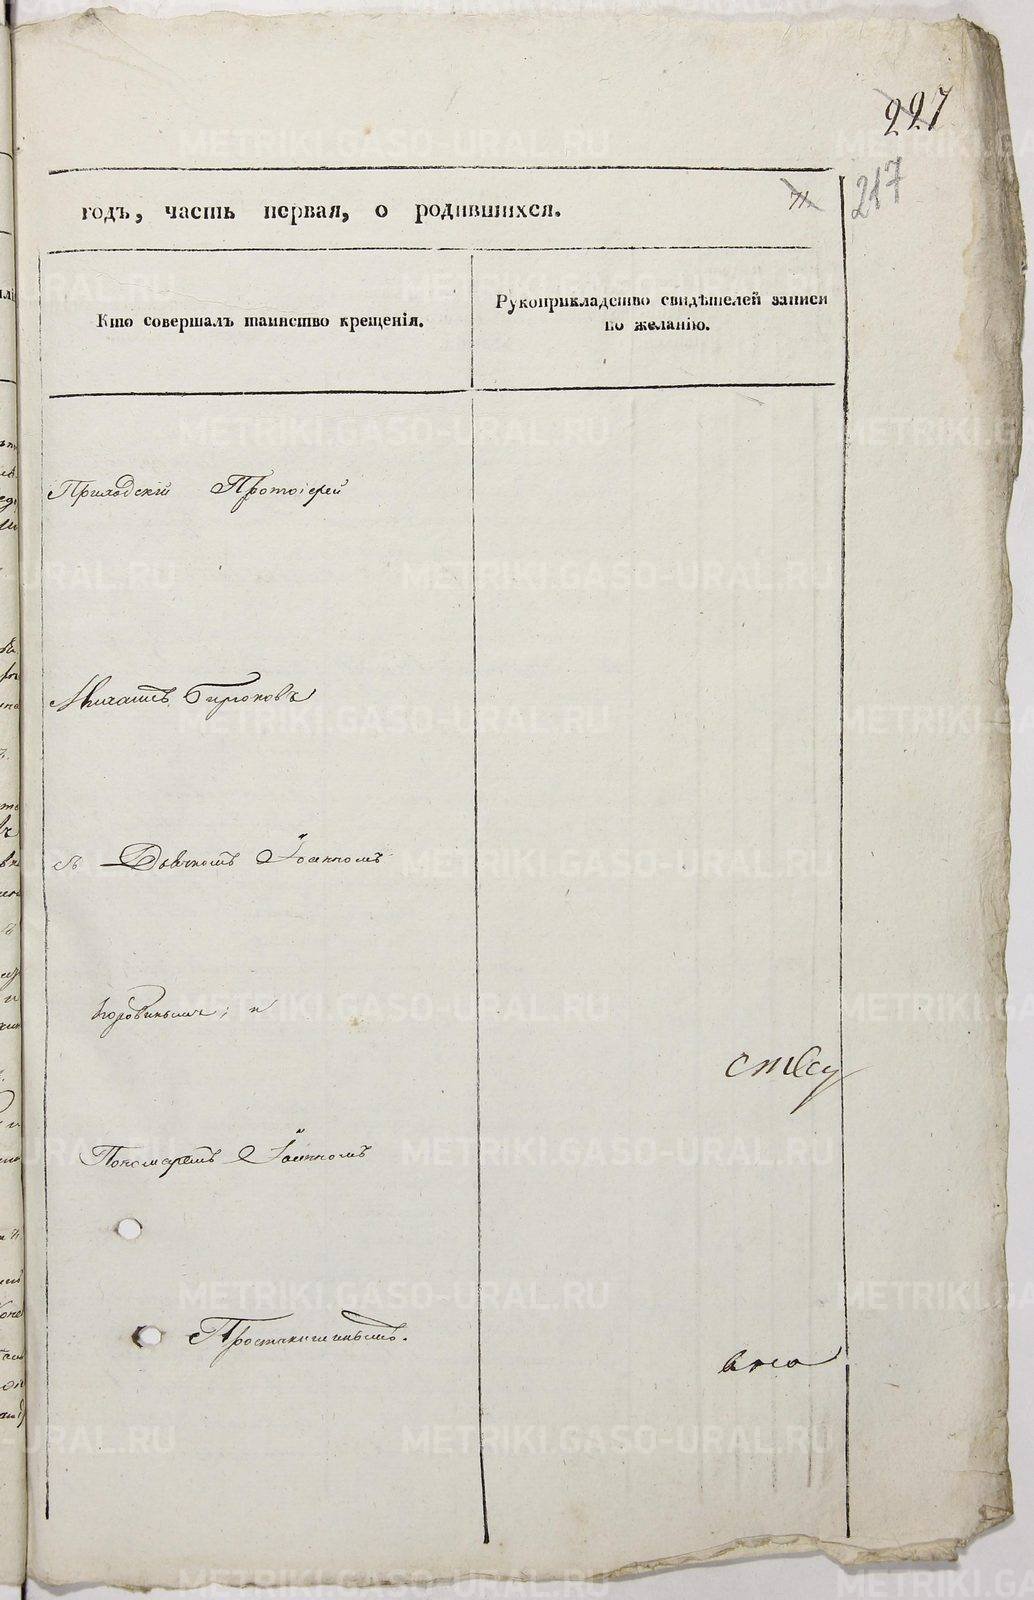 227
217
годъ, часть первая, о родившихся.
Кто совершалъ таинство крещенія.
Рукоприкладство свидѣтелей записи
по желанію.
Приходскій Протоіерей
Михаилъ Бирюковъ
съ Дьячкомъ Іоанномъ
и
Пономаремъ Іоанномъ
METRIKI.GASO-URAL.RU